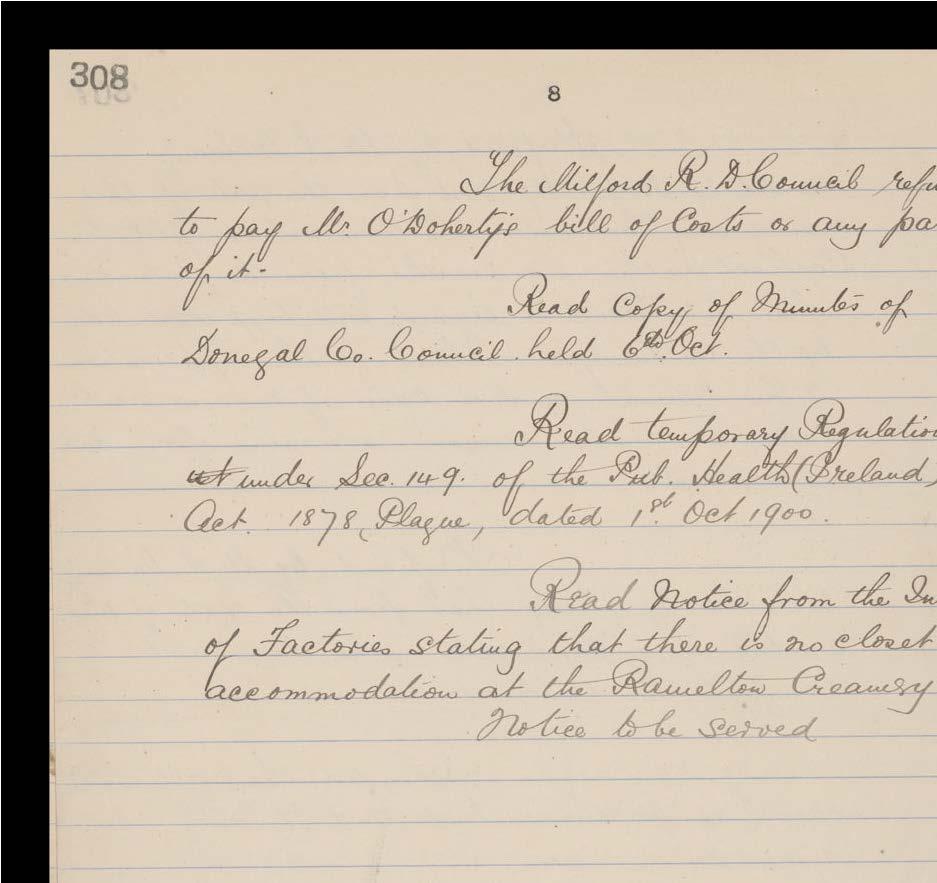 308
8
The Milford R. D. Council refu
to pay Mr. O'Doherty's bill of Costs or any pa
of it-
Read Copy of Minutes of
Donegal Co. Council held 6th Oct.
Read temporary Regulation
under Sec. 149. of the Pub. Health (Ireland)
Act. 1878, Plague, dated 1st. Oct 1900.
Read Notice from the In
of Factories stating that there is no closet
accommodation at the Ramelton Creamery
Notice to be served